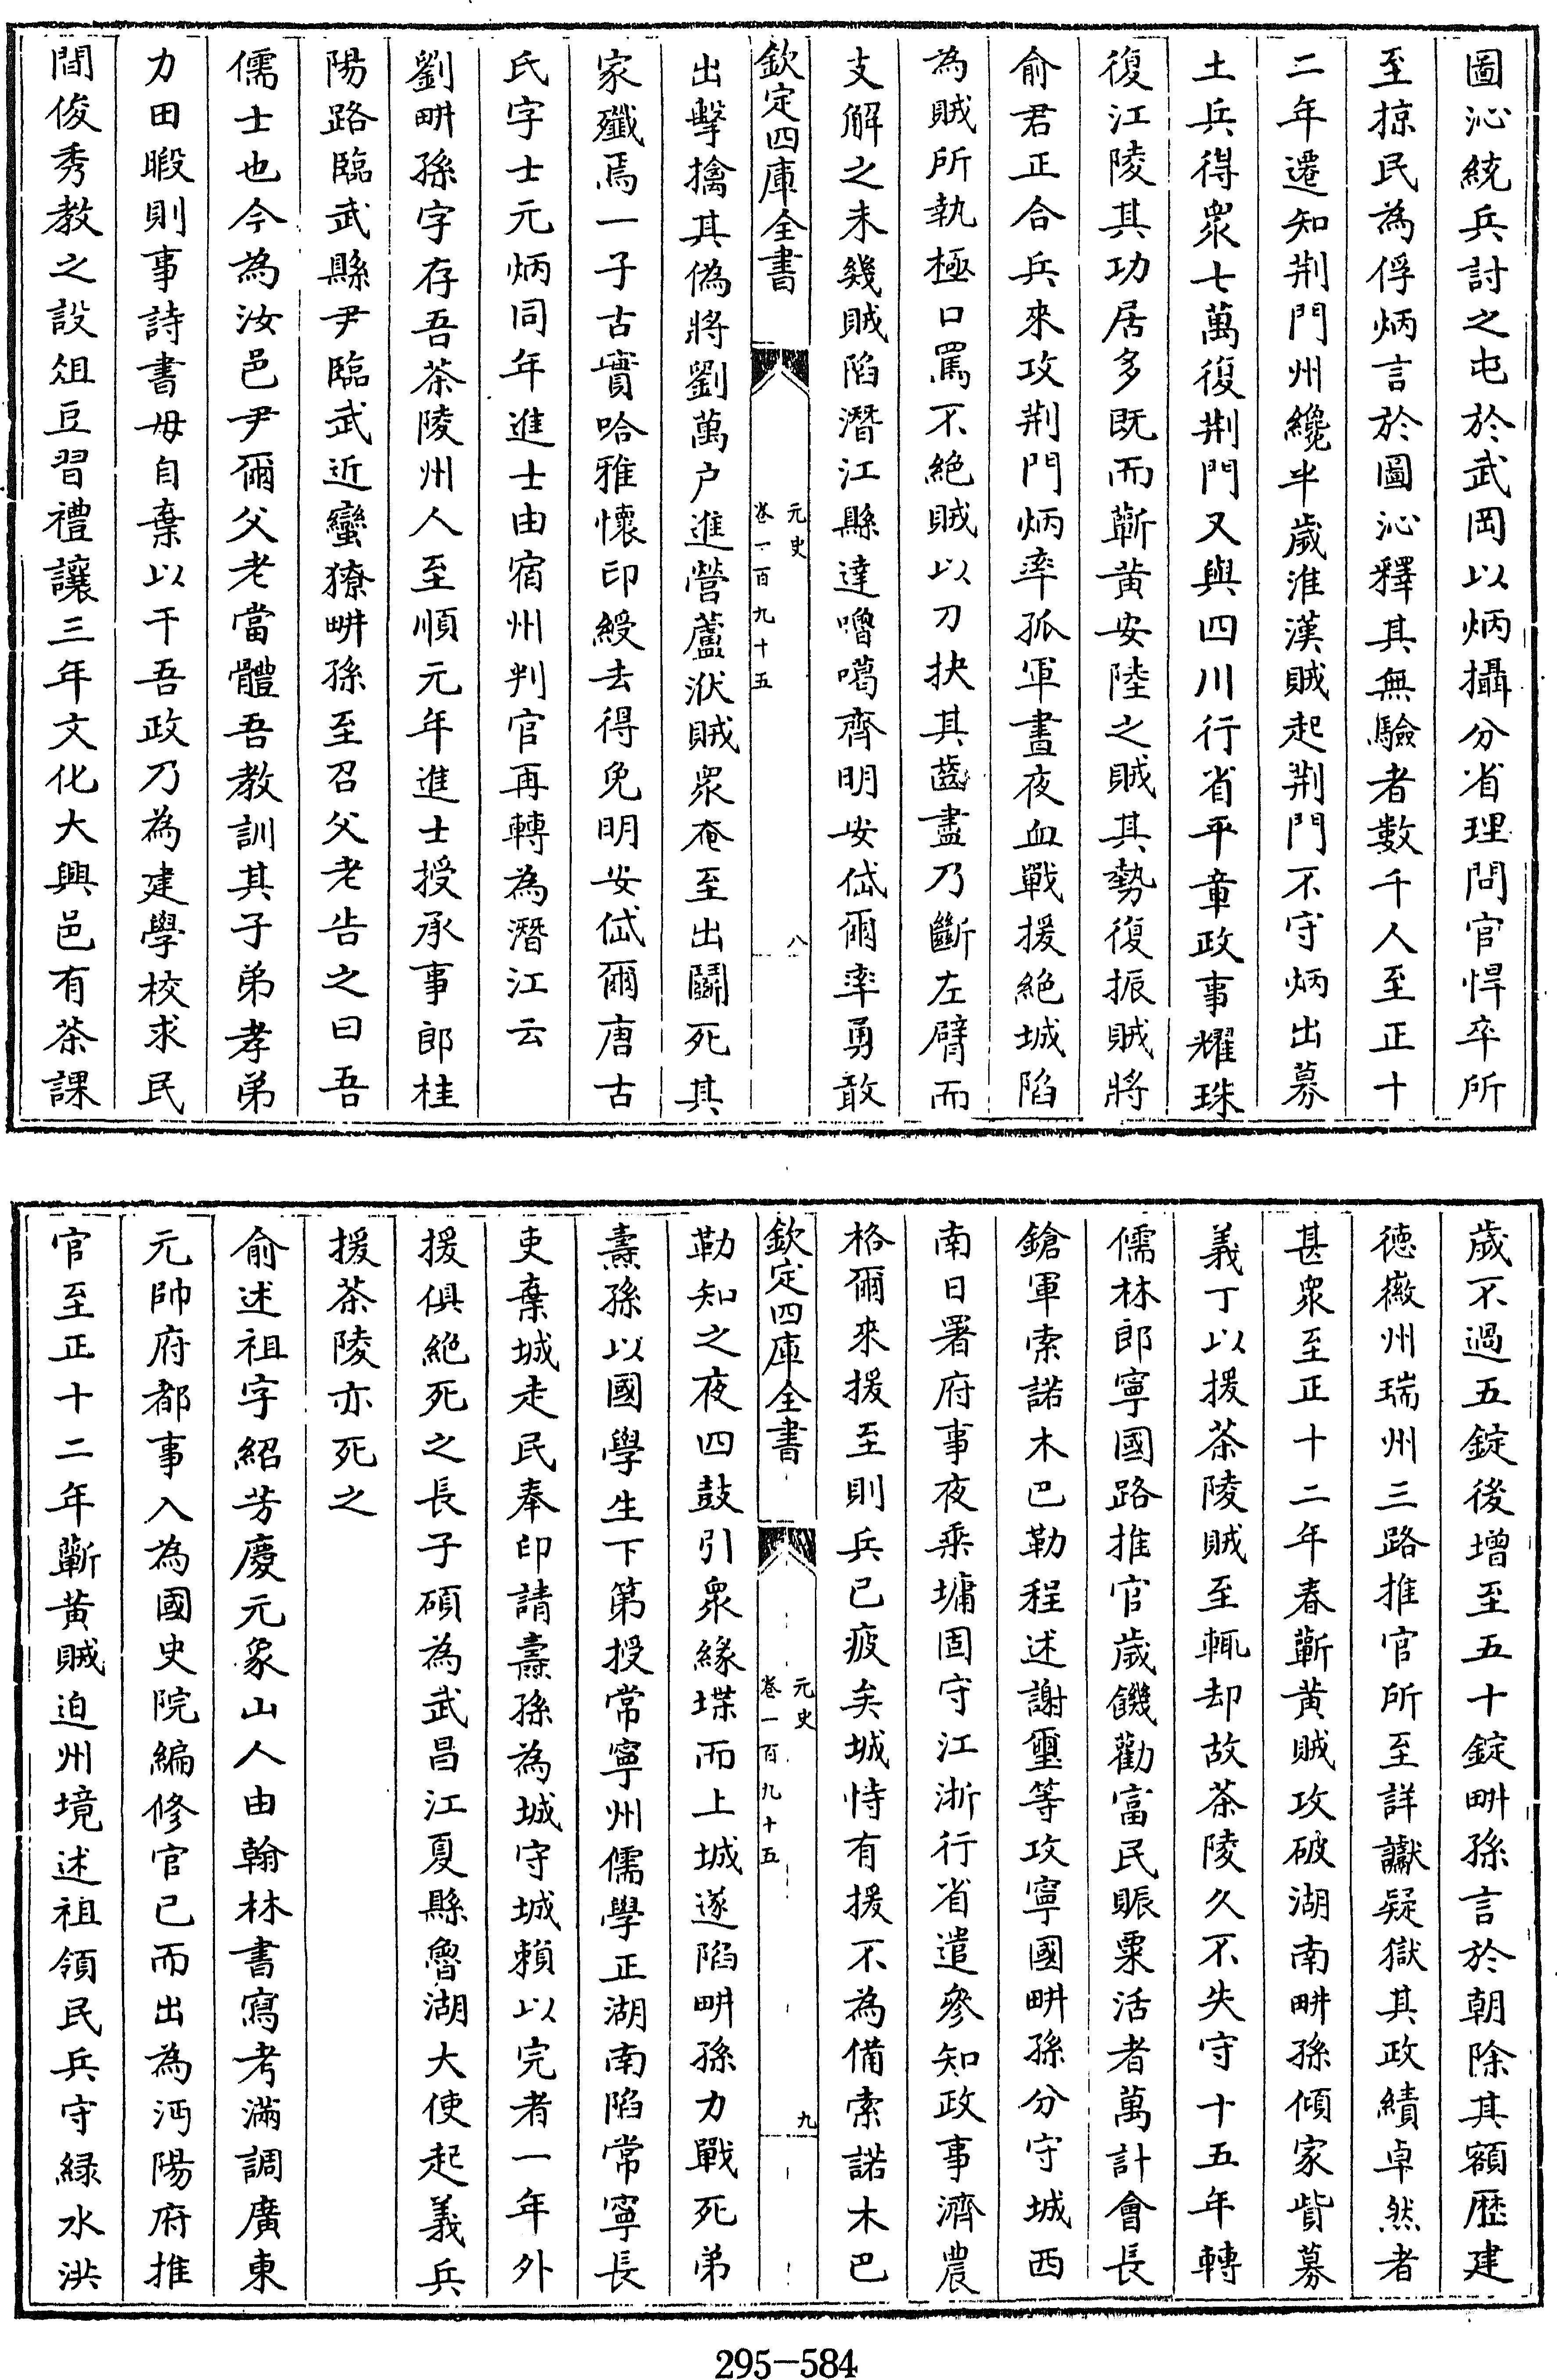 圖沁統兵討之屯於武岡以炳攝分省理問官悍卒所
至掠民為俘炳言於圖沁釋其無驗者數千人至正十
二年遷知荆門州纔半歲淮漢賊起荆門不守炳出募
土兵得衆七萬復荆門又與四川行省平章政事耀珠
復江陵其功居多既而蘄黄安陸之賊其勢復振賊將
俞君正合兵來攻荆門炳率孤軍晝夜血戰援絶城陷
為賊所執極口罵不絶賊以刀抉其齒盡乃斷左臂而
支解之未幾賊陷潛江縣達嚕噶齊明安岱爾率勇敢
欽定四庫全書
元史
卷一百九十五
八
出擊擒其偽將劉萬户進營蘆洑賊衆奄至出鬭死其
家殲焉一子古實哈雅懷印綬去得免明安岱爾唐古
氏字士元炳同年進士由宿州判官再轉為潛江云
劉畊孫字存吾茶陵州人至順元年進士授承事郎桂
陽路臨武縣尹臨武近蠻獠畊孫至召父老告之曰吾
儒士也今為汝邑尹爾父老當體吾教訓其子弟孝弟
力田暇則事詩書毋自棄以干吾政乃為建學校求民
間俊秀教之設俎豆習禮讓三年文化大興邑有茶課
歲不過五錠後增至五十錠畊孫言於朝除其額歷建
德徽州瑞州三路推官所至詳讞疑獄其政績卓然者
甚衆至正十二年春蘄黄賊攻破湖南畊孫傾家貲募
義丁以援茶陵賊至輒却故茶陵久不失守十五年轉
儒林郎寧國路推官歲饑勸富民賑粟活者萬計會長
鎗軍索諾木巴勒程述謝璽等攻寧國畊孫分守城西
南日署府事夜乘墉固守江浙行省遣參知政事濟農
格爾來援至則兵已疲矣城恃有援不為備索諾木巴
欽定四庫全書
元史
卷一百九十五
九
勒知之夜四鼓引衆緣堞而上城遂陷畊孫力戰死弟
燾孫以國學生下第授常寧州儒學正湖南陷常寧長
吏棄城走民奉印請燾孫為城守城賴以完者一年外
援俱絶死之長子碩為武昌江夏縣魯湖大使起義兵
援茶陵亦死之
俞述祖字紹芳慶元象山人由翰林書寫考滿調廣東
元帥府都事入為國史院編修官已而出為沔陽府推
官至正十二年蘄黄賊迫州境述祖領民兵守緑水洪
295-584